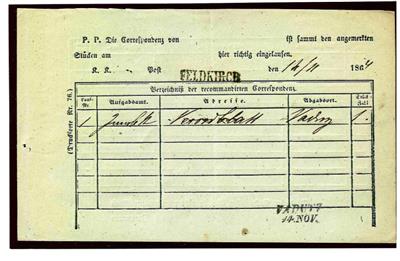 P. P. Die Correspondenz von ist sammt den angemerkten
Stücken am hier richtig eingelaufen.
K. K. Post FELDKIRCH den 14/11 1864
Verzeichniß der recommandirten Correspondenz.
Aufgabsamt. Adresse. Abgabsort.
1 Vaduz 1.
(Drucksorte Nr. 76.)
VADUTZ
14. NOV.